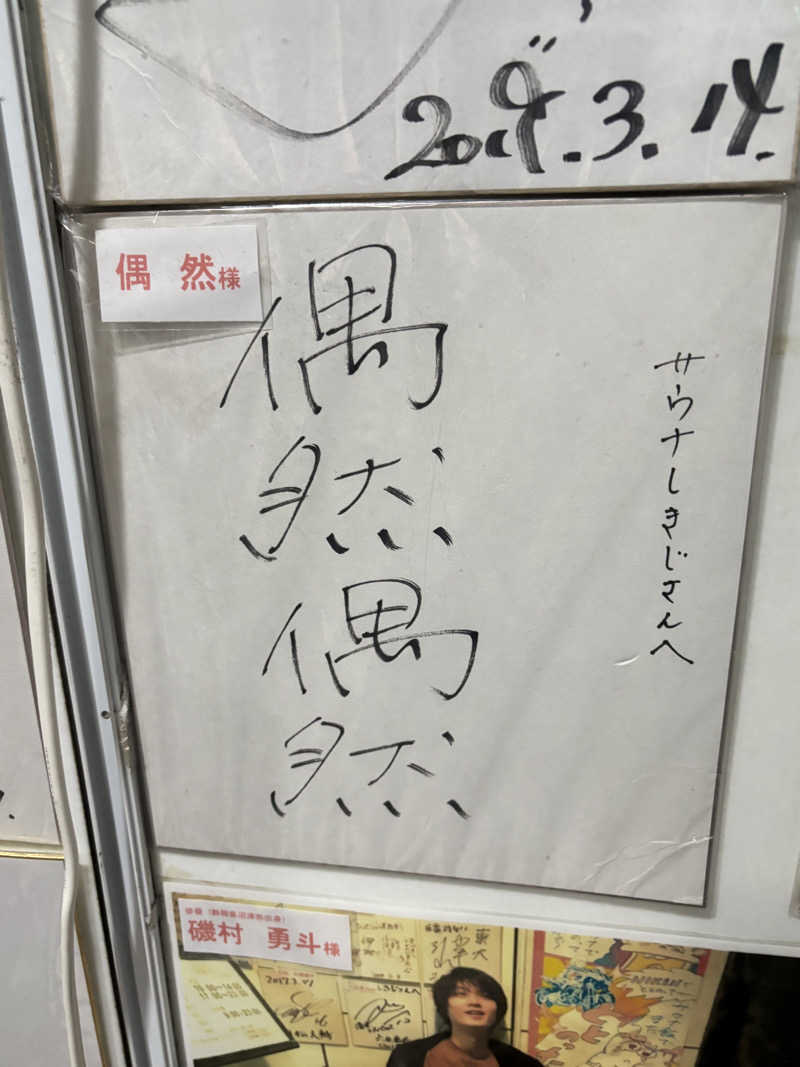 2019.3.14.
偶 然様
サウナしきじさんへ
偶
然
偶
然
俳優(静岡県沼津市出身)
磯村 勇斗様
2019.3.01
東大